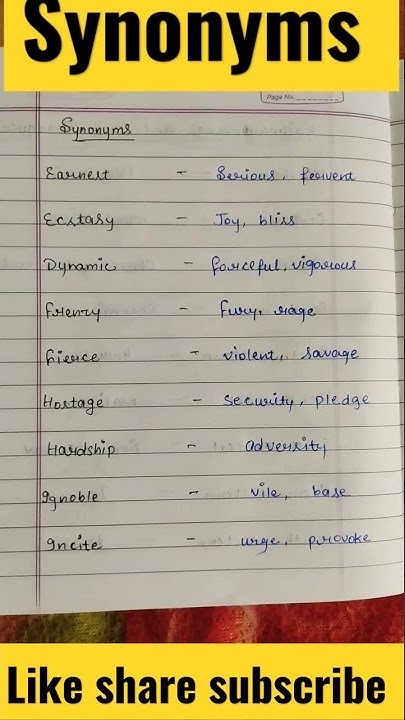 Synonyms
Page No.
Synonyms
Earnest - Serious, fervent
Ecstasy - Joy, bliss
Dynamic - forceful, vigorous
frenzy - fury, rage
fierce - violent, savage
Hostage - security, pledge
Hardship - adversity
Ignoble - vile, base
Incite - urge, provoke
Like share subscribe